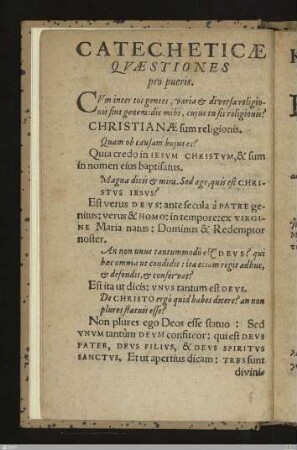 CATECHETICÆ
QVÆSTIONES
pro pueris.
CVm inter tot gentes, varia & diversa religio-
nis sint genera: dic mihi, cujus tu sis religionis?
CHRISTIANÆ sum religionis.
Quam ob causam hujus es?
Quia credo in IESVM CHRISTVM, & sum
in nomen eius baptisatus.
Magna dicis & mira. Sed age, quis est CHRI-
STVS IESVS?
Est verus DEVS: ante secula à PATRE ge-
nitus; verus & HOMO: in tempore: ex VIRGI-
NE Maria natus: Dominus & Redemptor
noster.
An non unus tantummodò est DEVS? qui
hæc omnia ut condidit: ita etiam regit adhuc,
& defendit, & conservat?
Est ita ut dicis: VNVS tantum est DEVS.
De CHRISTO ergò quid habes dicere? an non
plures statuis esse?
Non plures ego Deos esse statuo: Sed
VNVM tantùm DEVM confiteor: qui est DEVS
PATER, DEVS FILIVS, & DEVS SPIRITVS
SANCTVS, Et ut apertius dicam: TRES sunt
divinæ